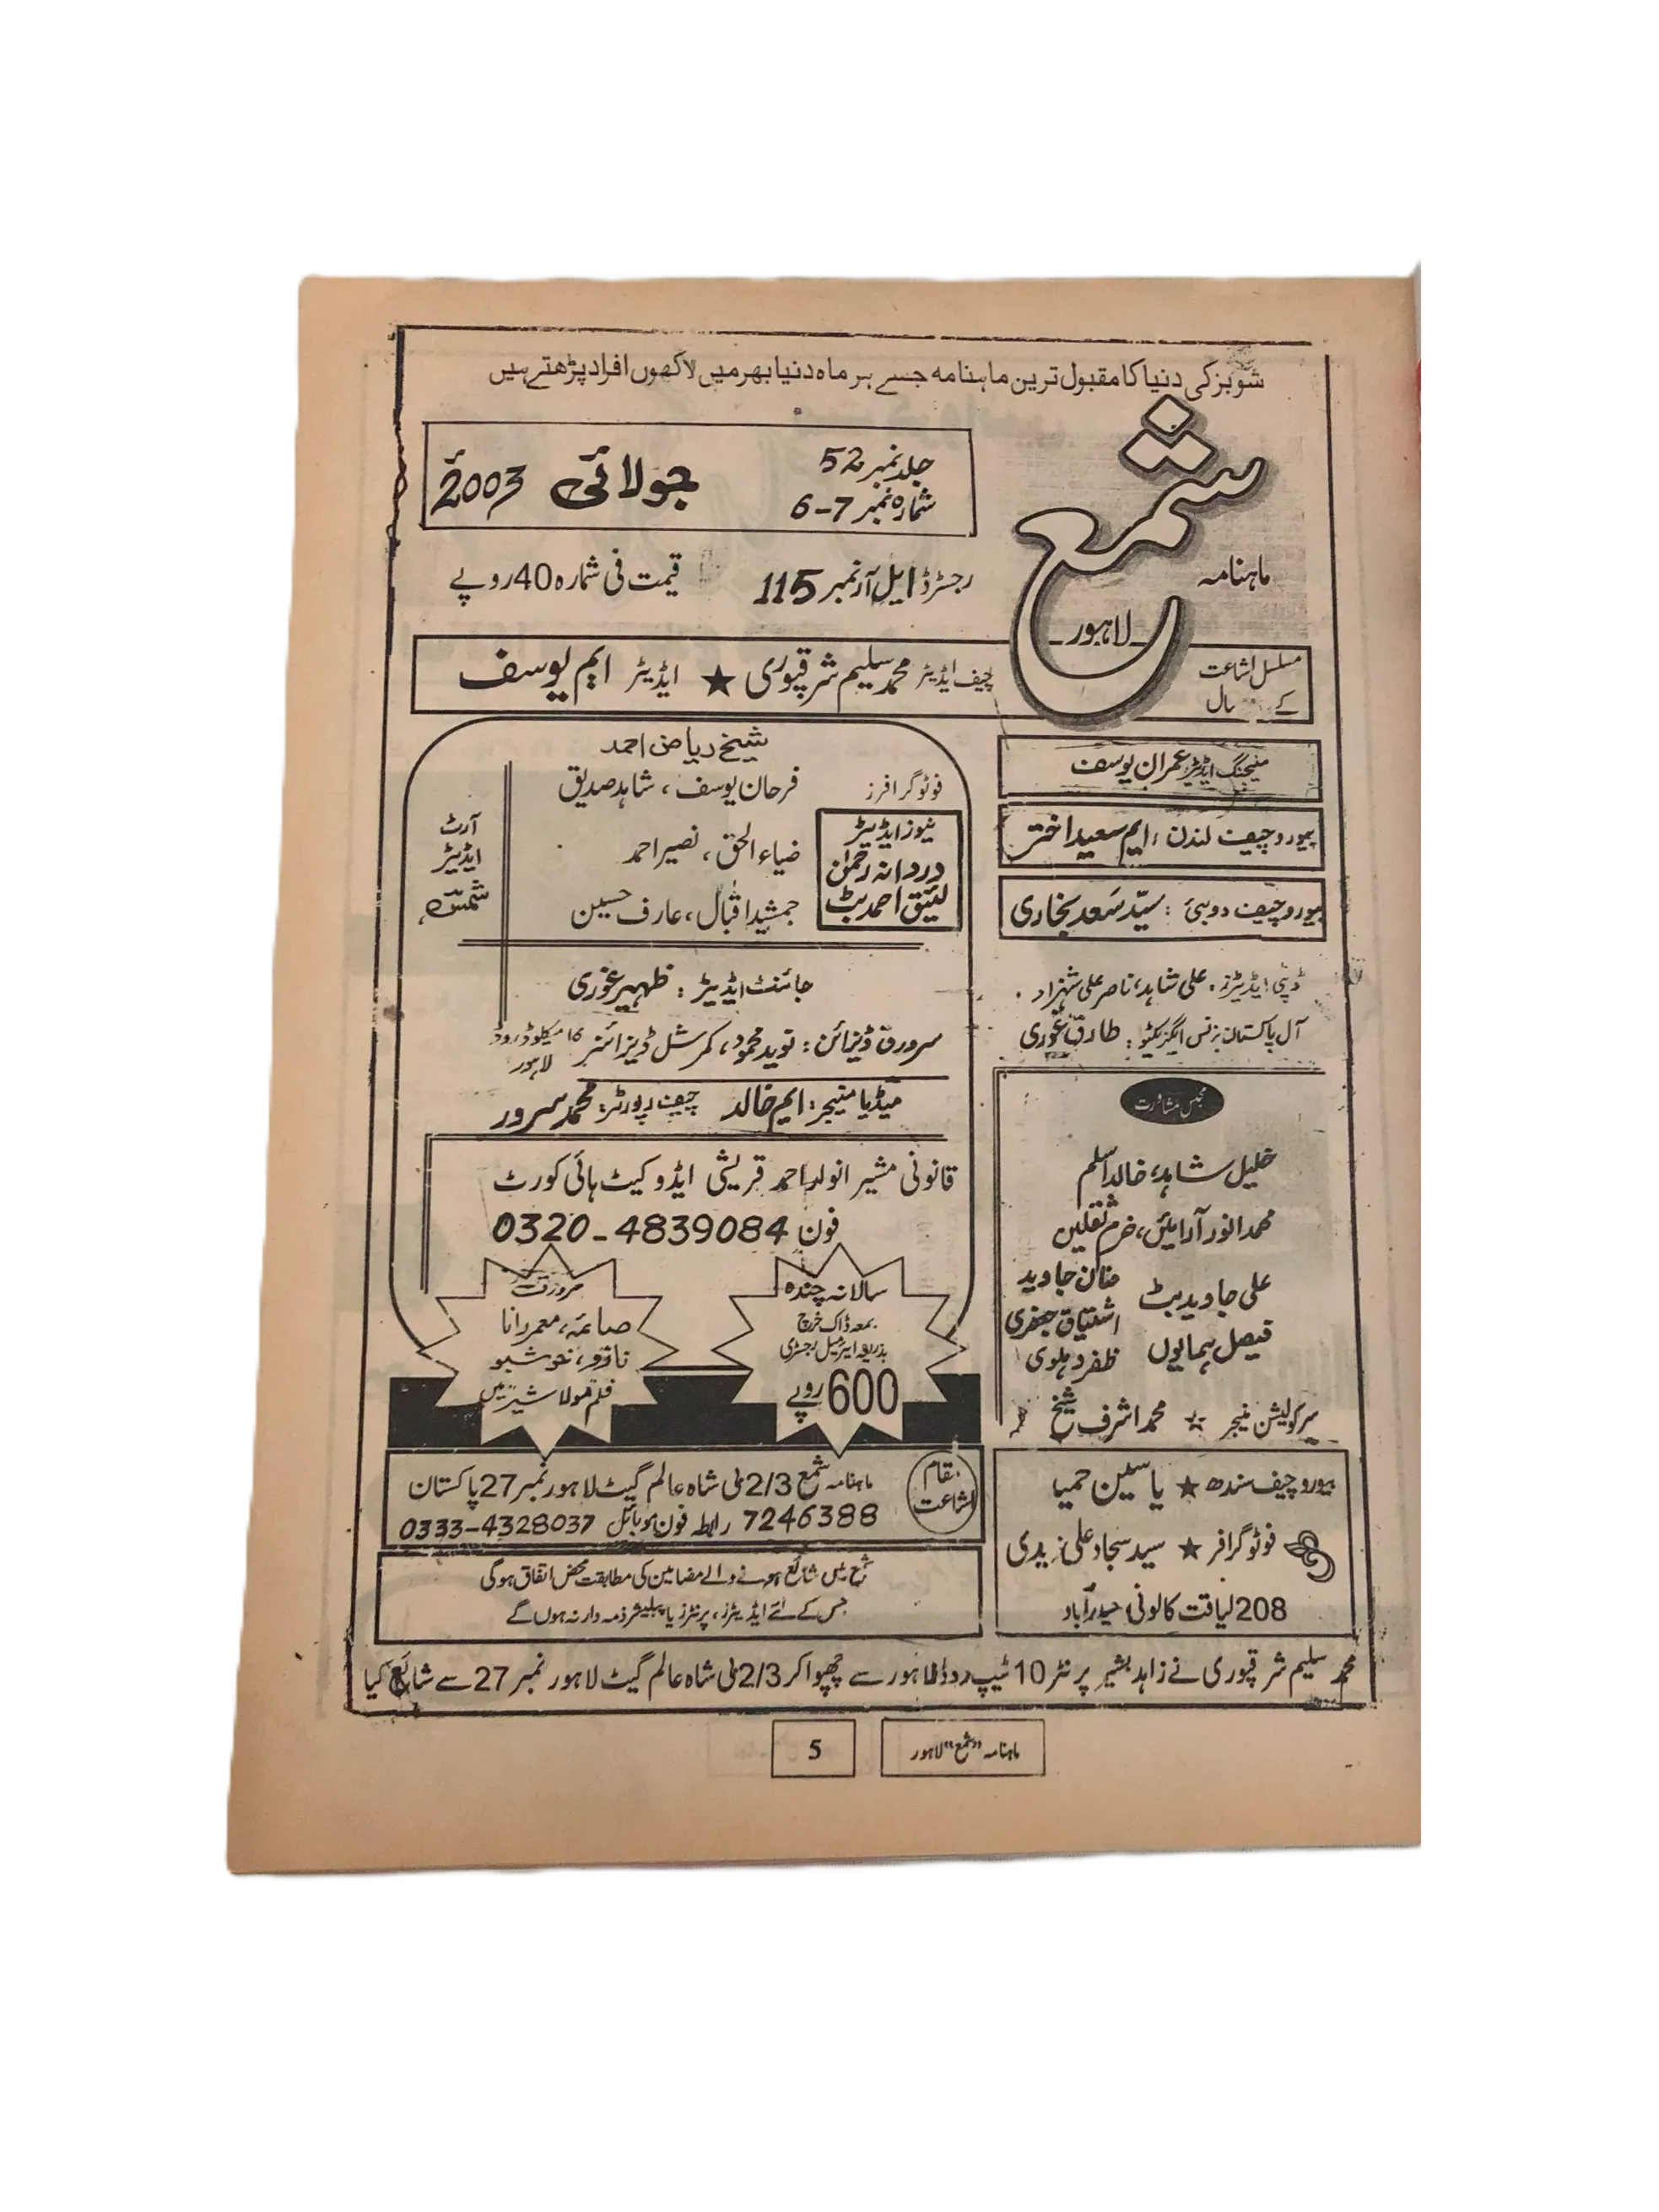 شوبز کی دنیا کا مقبول ترین ماہنامہ جسے ہر ماہ دنیا بھر میں لاکھوں افراد پڑھتے ہیں
ماہنامہ
شمع
لاہور
جلد نمبر 52
شمارہ نمبر 7-6
جولائی 2003ء
رجسٹرڈ ایل آر نمبر 115
قیمت فی شمارہ 40 روپے
مسلسل اشاعت
کے سال
چیف ایڈیٹر محمد سلیم شرقپوری ★ ایڈیٹر ایم یوسف
منیجنگ ایڈیٹر عمران یوسف
بیورو چیف لندن : ایم سعید اختر
بیورو چیف دوبئی : سیّد سَعد بخاری
ڈپٹی ایڈیٹرز : علی شاہد، ناصر علی شہزاد
آل پاکستان بزنس ایگزیکٹو : طارق غوری
مجلس مشاورت
خلیل شاہد، خالد اسلم
محمد انور آرائیں، خرم ثقلین
علی جاوید بٹ
فیصل ہمایوں
منان جاوید
اشتیاق جعفری
ظفر دہلوی
سرکولیشن منیجر ☆ محمد اشرف شیخ
بیورو چیف سندھ ★ یاسین حمیا
فوٹو گرافر ★ سید سجاد علی زیدی
208 لیاقت کالونی، حیدرآباد
شیخ ریاض احمد
فوٹو گرافرز
فرحان یوسف، شاہد صدیق
ضیاء الحق، نصیر احمد
جمشید اقبال، عارف حسین
نیوز ایڈیٹر
دردانہ رحمٰن
لئیق احمد بٹ
آرٹ
ایڈیٹر
جائنٹ ایڈیٹر : ظہیر غوری
سرورق ڈیزائن : نوید محمود، کمرشل ڈیزائنر 16 میکلوڈ روڈ
لاہور
میڈیا منیجر : ایم خالد چیف رپورٹر : محمد سرور
قانونی مشیر انوار احمد قریشی ایڈوکیٹ ہائی کورٹ
فون 4839084-0320
سالانہ چندہ
بمعہ ڈاک خرچ
بذریعہ ایئرمیل رجسٹری
600 روپے
سرورق
صائمہ، معمر رانا
نادرہ، خوشبو
فلم مولا شیر میں
مقام
اشاعت
ماہنامہ شمع 2/3 ملی شاہ عالم گیٹ لاہور نمبر 27 پاکستان
7246388 رابطہ فون موبائل 0333-4328037
شمع میں شائع ہونے والے مضامین کی مطابقت محض اتفاق ہوگی
جس کے لئے ایڈیٹرز، پرنٹرز یا پبلیشر ذمہ دار نہ ہوں گے
محمد سلیم شرقپوری نے زاہد بشیر پرنٹر 10 ٹیپ روڈ لاہور سے چھپوا کر 2/3 ملی شاہ عالم گیٹ لاہور نمبر 27 سے شائع کیا
ماہنامہ "شمع" لاہور
5